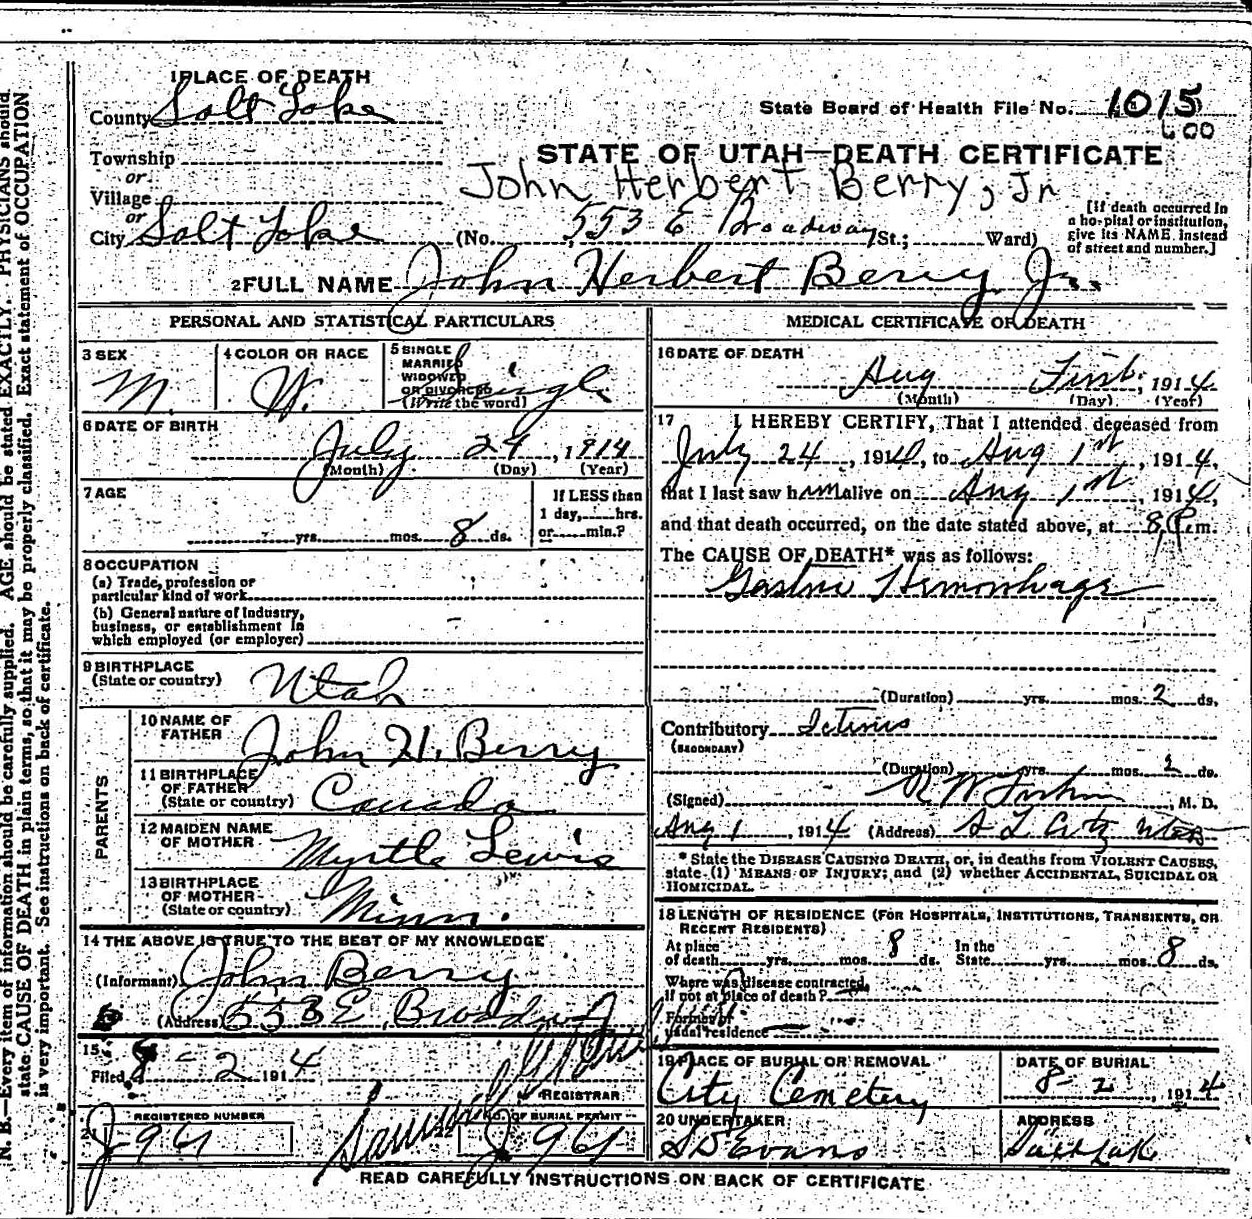 1 PLACE OF DEATH
County Salt Lake
State Board of Health File No. 1015
600
Township
or
STATE OF UTAH—DEATH CERTIFICATE
John Herbert Berry, Jr
Village
or
City Salt Lake (No. 553 E Broadway St.; Ward)
[If death occurred in a hospital or institution, give its NAME instead of street and number.]
2 FULL NAME John Herbert Berry Jr.
PERSONAL AND STATISTICAL PARTICULARS
3 SEX M.
4 COLOR OR RACE W.
5 SINGLE MARRIED WIDOWED OR DIVORCED (Write the word) Single
6 DATE OF BIRTH July 24, 1914
(Month) (Day) (Year)
7 AGE yrs. mos. 8 ds.
If LESS than 1 day, hrs. or min.?
8 OCCUPATION
(a) Trade, profession or particular kind of work
(b) General nature of Industry, business, or establishment in which employed (or employer)
9 BIRTHPLACE (State or country) Utah
PARENTS
10 NAME OF FATHER John H. Berry
11 BIRTHPLACE OF FATHER (State or country) Canada
12 MAIDEN NAME OF MOTHER Myrtle Lewis
13 BIRTHPLACE OF MOTHER (State or country) Minn.
14 THE ABOVE IS TRUE TO THE BEST OF MY KNOWLEDGE
(Informant) John Berry
(Address) 553 E. Broadway
15 Filed 8-2 1914
REGISTRAR
REGISTERED NUMBER J-961
NO. OF BURIAL PERMIT J 961
MEDICAL CERTIFICATE OF DEATH
16 DATE OF DEATH
Aug First, 1914
(Month) (Day) (Year)
17 I HEREBY CERTIFY, That I attended deceased from
July 24, 1914, to Aug 1st, 1914,
that I last saw him alive on Aug 1st, 1914,
and that death occurred, on the date stated above, at 8 P m.
The CAUSE OF DEATH* was as follows:
Gastric Hemorrhage
(Duration) yrs. mos. 2 ds.
Contributory Icterus
(SECONDARY)
(Duration) yrs. mos. 2 ds.
(Signed) R W , M. D.
Aug 1, 1914 (Address) S L City Utah
* State the DISEASE CAUSING DEATH, or, in deaths from VIOLENT CAUSES, state (1) MEANS OF INJURY; and (2) whether ACCIDENTAL, SUICIDAL OR HOMICIDAL.
18 LENGTH OF RESIDENCE (FOR HOSPITALS, INSTITUTIONS, TRANSIENTS, OR RECENT RESIDENTS)
At place of death yrs. mos. 8 ds. In the State yrs. mos. 8 ds.
Where was disease contracted, If not at place of death?
Former or usual residence
19 PLACE OF BURIAL OR REMOVAL City Cemetery
DATE OF BURIAL 8-2 1914
20 UNDERTAKER S D Evans
ADDRESS Salt Lake
READ CAREFULLY INSTRUCTIONS ON BACK OF CERTIFICATE
N. B.—Every item of information should be carefully supplied. AGE should be stated EXACTLY. PHYSICIANS should
state CAUSE OF DEATH in plain terms, so that it may be properly classified. Exact statement of OCCUPATION
is very important. See instructions on back of certificate.